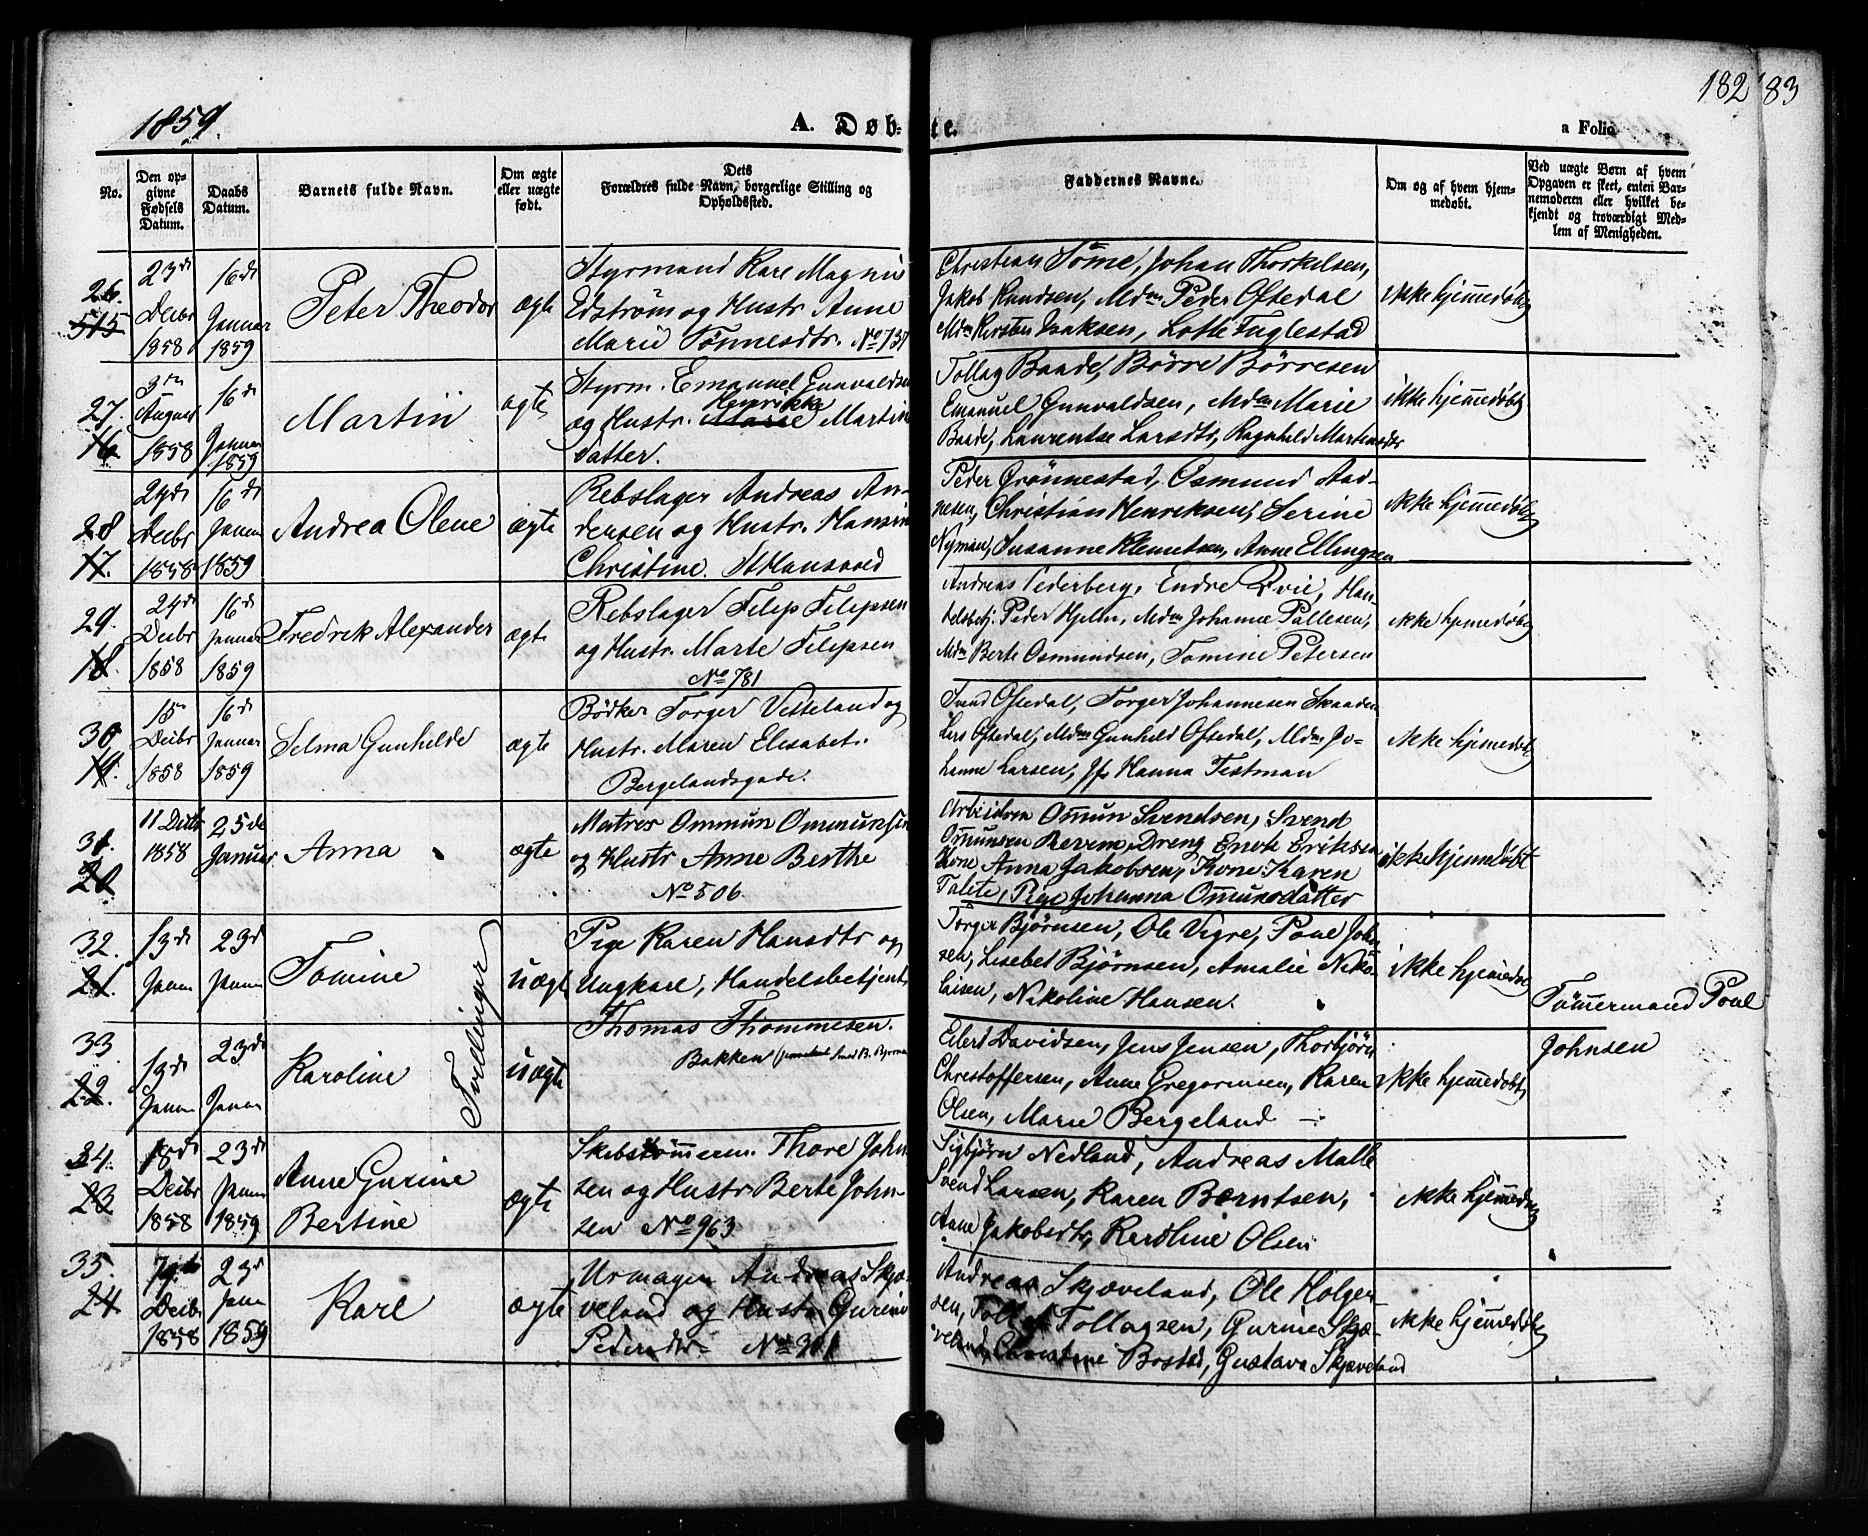 1859.
A. Døb-
te.
a Folio
182
183
No.
Den op-
givne
Fødsels
Datum.
Daabs
Datum.
Barnets fulde Navn.
Om ægte
eller uægte
født.
Dets
Forældres fulde Navn, borgerlige Stilling og
Opholdssted.
Faddernes Navne.
Om og af hvem hjem-
medøbt.
Ved uægte Børn af hvem
Opgaven er skeet, enten Bar-
nemoderen eller hvilket be-
kjendt og troværdigt Med-
lem af Menigheden.
26.
515
23de
Decbr
1858
16de
Januar
1859
Peter Theodor
ægte
Styrmand Karl Magnus
Edström og Hustr. Anne
Marie Tönnesdtr. No 737
Christian Töme, Johan Thorkelsen,
Jakob Knudsen, Mdm Peder Oftedal
Mdm Kirsten Isaksen, Lotte Fuglestad
ikke hjemmedøbt
27.
16
3die
August
1858
16de
Januar
1859
Martin
ægte
Styrm. Emanuel Gunvaldsen
Henrikke
og Hustr. Marie Martin
datter.
Tollag Baade, Börre Börresen
Emanuel Gunvaldsen, Mdm Marie
Baade, Laurentse Larsdtr, Ragnhild Martinsdtr
ikke hjemmedøbt
28
17.
24de
Decbr
1858
16de
Januar
1859
Andrea Olene
ægte
Rebslager Andreas An-
dersen og Hustr. Hansine
Christine. St Hansvold
Peder Grönnestad, Osmund Aad-
nesen, Christian Henriksen, Serine
Nyman, Susanne Klemetsen, Anne Ellingsen
ikke hjemmedøbt
29.
18.
24de
Decbr
1858
16de
Januar
1859
Fredrik Alexander
ægte
Rebslager Filip Filipsen
og Hustr. Marte Filipsen
No 781
Andreas Cederberg, Endre Qvie, Han-
delsbetj. Peder Hjelm, Mdm Johanne Pallesen,
Mdm Berte Osmundsen, Tomine Petersen
ikke hjemmedøbt
30.
19.
15de
Decbr
1858
16de
Januar
1859
Selma Gunhilde
ægte
Bödker Torger Vetteland og
Hustr. Maren Elisabet.
Bergelandsgade.
Svend Oftedal, Torger Johannesen Skaaden
Lars Oftedal, Mdm Gunhild Oftedal, Mdm Jo-
hanne Larsen, Jf Hanna Testman
ikke hjemmedøbt
31.
20
11 Decbr
1858
25de
Januar
Anna
ægte
Matros Ommun Ommunsen
og Hustr Anne Berthe
No 506.
Arbeideren Ommun Svendsen, Svend
Ommunsen Dreng Enok Eriksen
Kone Anna Jakobsen, Kone Karen
Talete, Pige Johanna Ommunsdatter
ikke hjemmedøbt
32.
21.
13de
Janu
23d
Janu
Tomine
Tvillinger
uægte
Pige Karen Hansdtr og
Ungkarl, Handelsbetjent
Thomas Thommesen.
Bakken
Torger Bjørnsen, Ole Vigre, Poul John-
sen, Lisebet Bjørnsen, Amalie Niko-
laisen, Nikoline Hansen.
ikke hjemmedøbt
Tömmermand Poul
Johnsen
33
22.
13de
Janu
23de
Januar
Karoline
uægte
Eilert Davidsen, Jens Jensen, Thorbjörn
Christoffersen, Anne Gregoriusen, Karen
Olsen, Marie Bergeland
ikke hjemmedøbt
34.
23
18de
Decbr
1858
23de
Janu
1859
Anne Gurine
Bertine
ægte
Skibstömmerm. Thore John-
sen og Hustr Berte John-
sen No 963
Sigbjörn Nedland, Andreas Malle
Svend Larsen, Karen Berntsen,
Anne Jakobsdtr, Karoline Olsen
ikke hjemmedøbt
35.
24
Decbr
1858
23d
Janu
1859
Karl
ægte
Urmager Andreas Skjæ-
veland og Hustr Gurine
Pedersdtr No 901
Andreas Skjæveland, Ole Holger-
sen, Tollag Tollagsen, Gurine Skjæ-
veland, Christine Bostad, Gustava Skjæveland
ikke hjemmedøbt